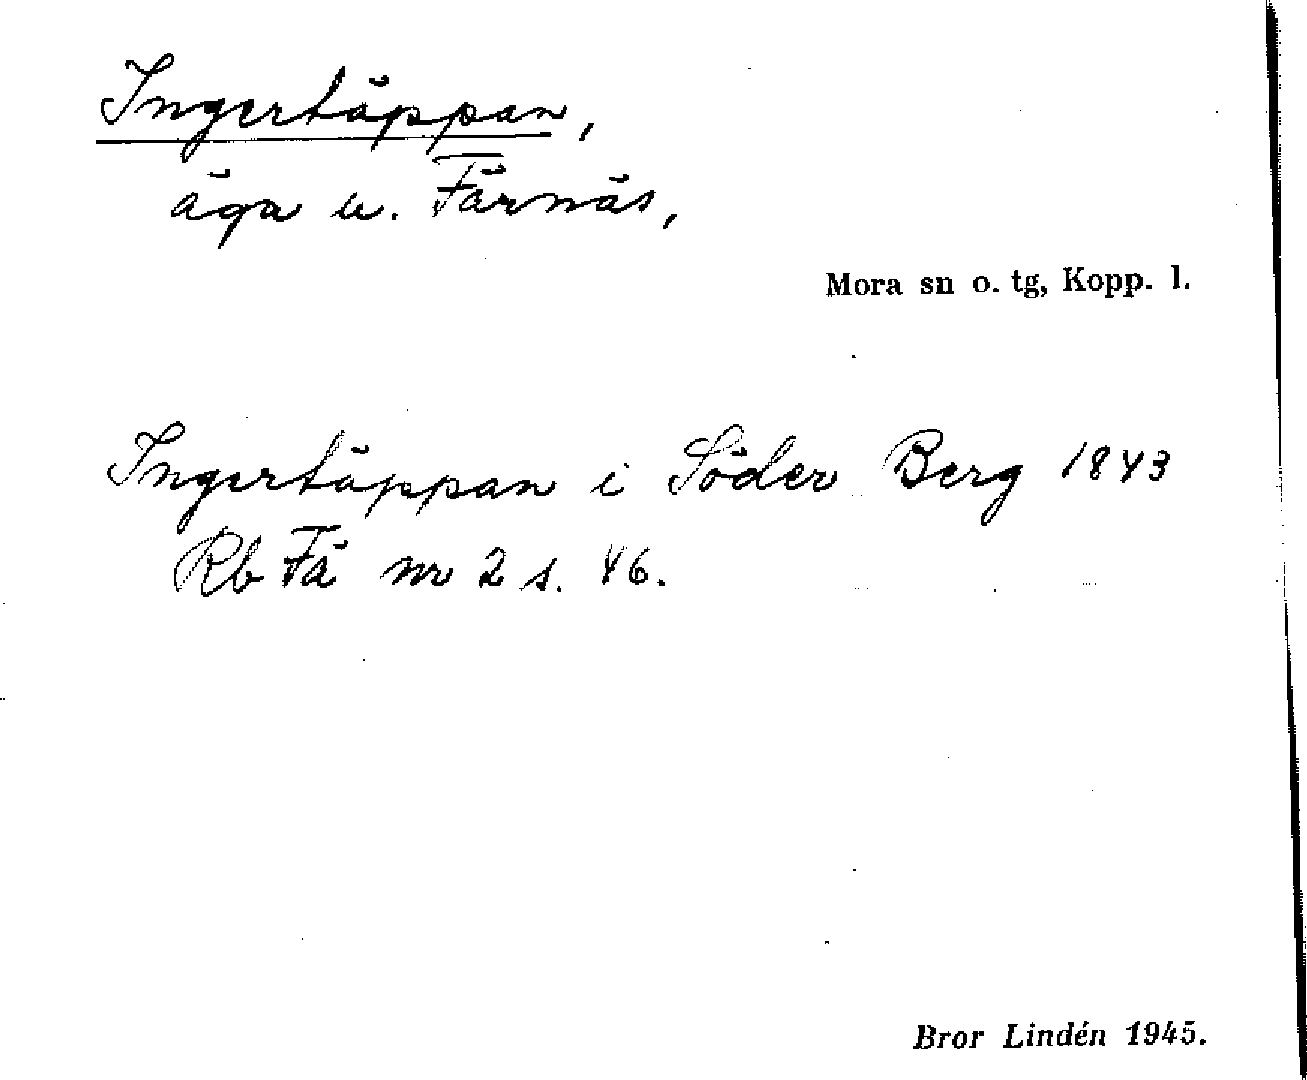 Ingertäppan,
äga u. Färnäs,
Mora sn o. tg, Kopp. l.
Ingertäppan i Söder Berg 1843
Rb Fä nr 2 s. 46.
Bror Lindén 1945.